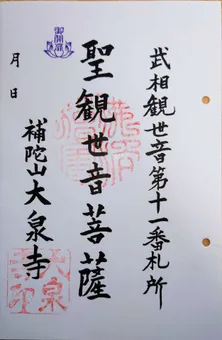 武相観世音第十一番札所
聖観世音菩薩
補陀山大泉寺
月 日